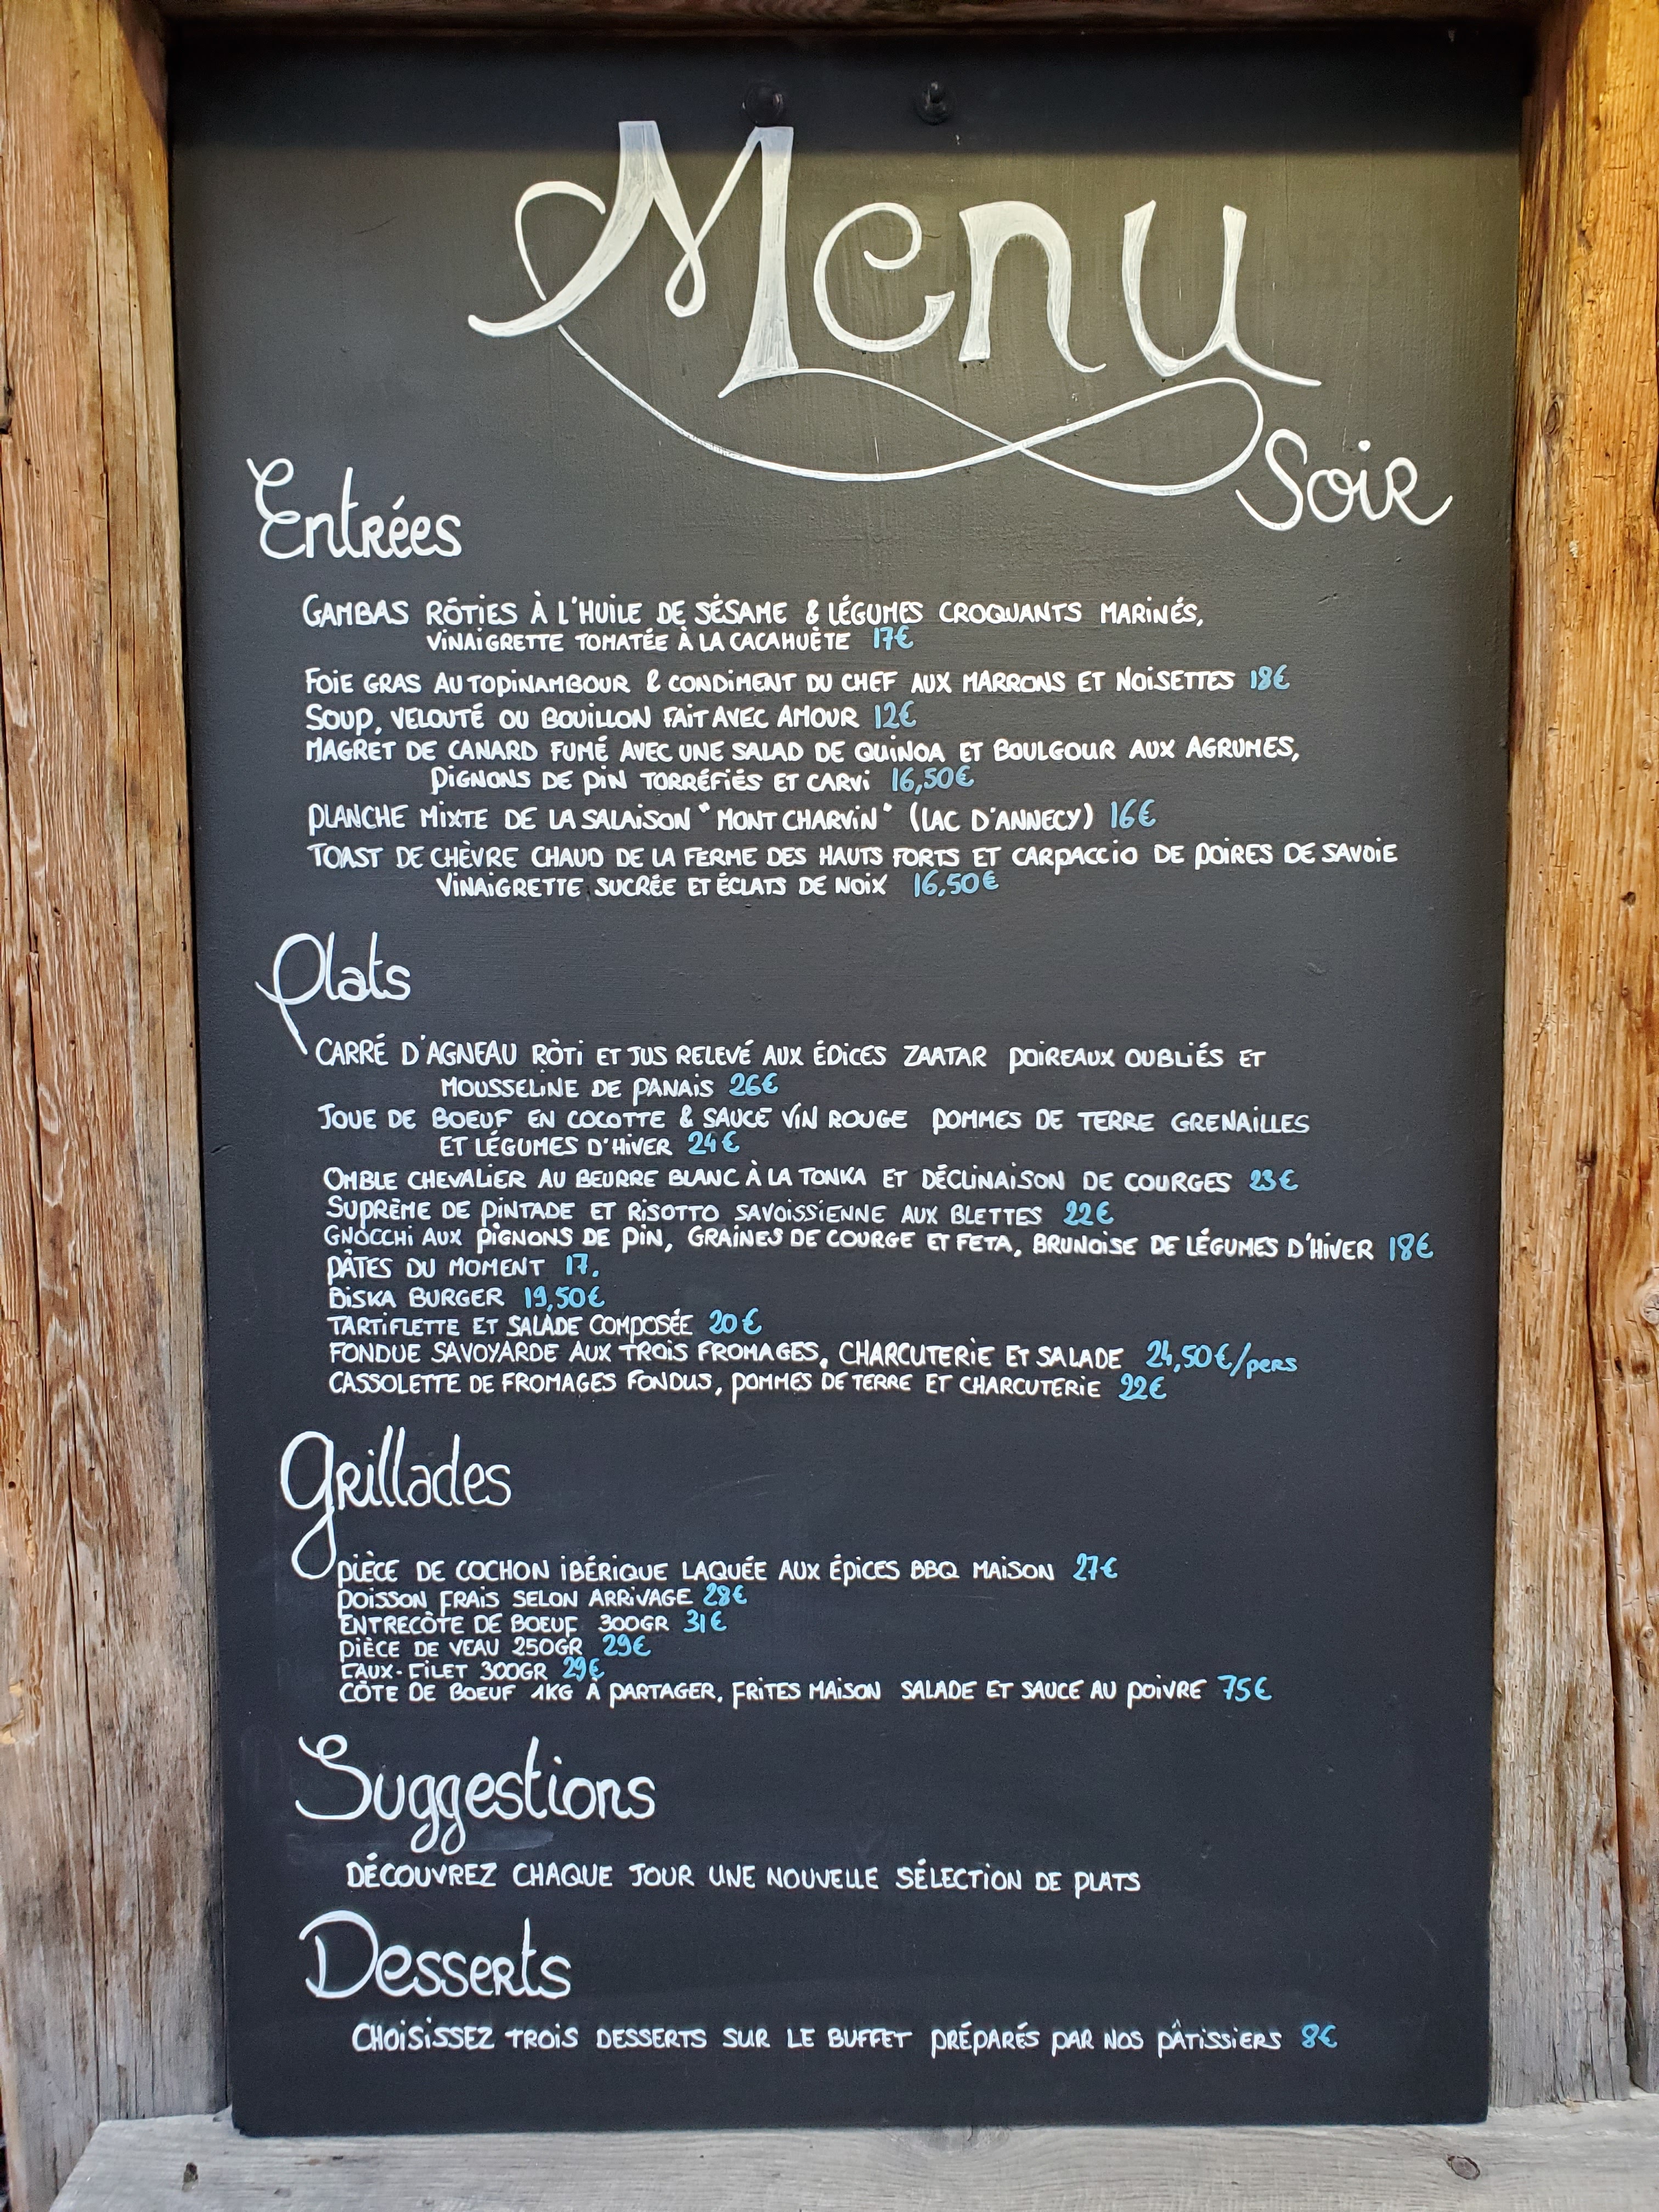 Menu
Soir
Entrées
GAMBAS RÔTIES À L'HUILE DE SÉSAME & LÉGUMES CROQUANTS MARINÉS,
VINAIGRETTE TOMATÉE À LA CACAHUÈTE 17€
FOIE GRAS AU TOPINAMBOUR & CONDIMENT DU CHEF AUX MARRONS ET NOISETTES 18€
SOUP, VELOUTÉ OU BOUILLON FAIT AVEC AMOUR 12€
MAGRET DE CANARD FUMÉ AVEC UNE SALAD DE QUINOA ET BOULGOUR AUX AGRUMES,
PIGNONS DE PIN TORRÉFIÉS ET CARVI 16,50€
PLANCHE MIXTE DE LA SALAISON "MONT CHARVIN" (LAC D'ANNECY) 16€
TOAST DE CHÈVRE CHAUD DE LA FERME DES HAUTS FORTS ET CARPACCIO DE POIRES DE SAVOIE
VINAIGRETTE SUCRÉE ET ÉCLATS DE NOIX 16,50€
Plats
CARRÉ D'AGNEAU RÔTI ET JUS RELEVÉ AUX ÉPICES ZAATAR POIREAUX OUBLIÉS ET
MOUSSELINE DE PANAIS 26€
JOUE DE BOEUF EN COCOTTE & SAUCE VIN ROUGE POMMES DE TERRE GRENAILLES
ET LÉGUMES D'HIVER 24€
OMBLE CHEVALIER AU BEURRE BLANC À LA TONKA ET DÉCLINAISON DE COURGES 23€
SUPRÈME DE PINTADE ET RISOTTO SAVOISSIENNE AUX BLETTES 22€
GNOCCHI AUX PIGNONS DE PIN, GRAINES DE COURGE ET FETA, BRUNOISE DE LÉGUMES D'HIVER 18€
PÂTES DU MOMENT 17.
BISKA BURGER 19,50€
TARTIFLETTE ET SALADE COMPOSÉE 20€
FONDUE SAVOYARDE AUX TROIS FROMAGES, CHARCUTERIE ET SALADE 24,50€/pers
CASSOLETTE DE FROMAGES FONDUS, POMMES DE TERRE ET CHARCUTERIE 22€
Grillades
PIÈCE DE COCHON IBÉRIQUE LAQUÉE AUX ÉPICES BBQ MAISON 27€
POISSON FRAIS SELON ARRIVAGE 28€
ENTRECÔTE DE BOEUF 300GR 31€
PIÈCE DE VEAU 250GR 29€
FAUX-FILET 300GR 29€
CÔTE DE BOEUF 1KG À PARTAGER, FRITES MAISON SALADE ET SAUCE AU POIVRE 75€
Suggestions
DÉCOUVREZ CHAQUE JOUR UNE NOUVELLE SÉLECTION DE PLATS
Desserts
CHOISISSEZ TROIS DESSERTS SUR LE BUFFET PRÉPARÉS PAR NOS PÂTISSIERS 8€